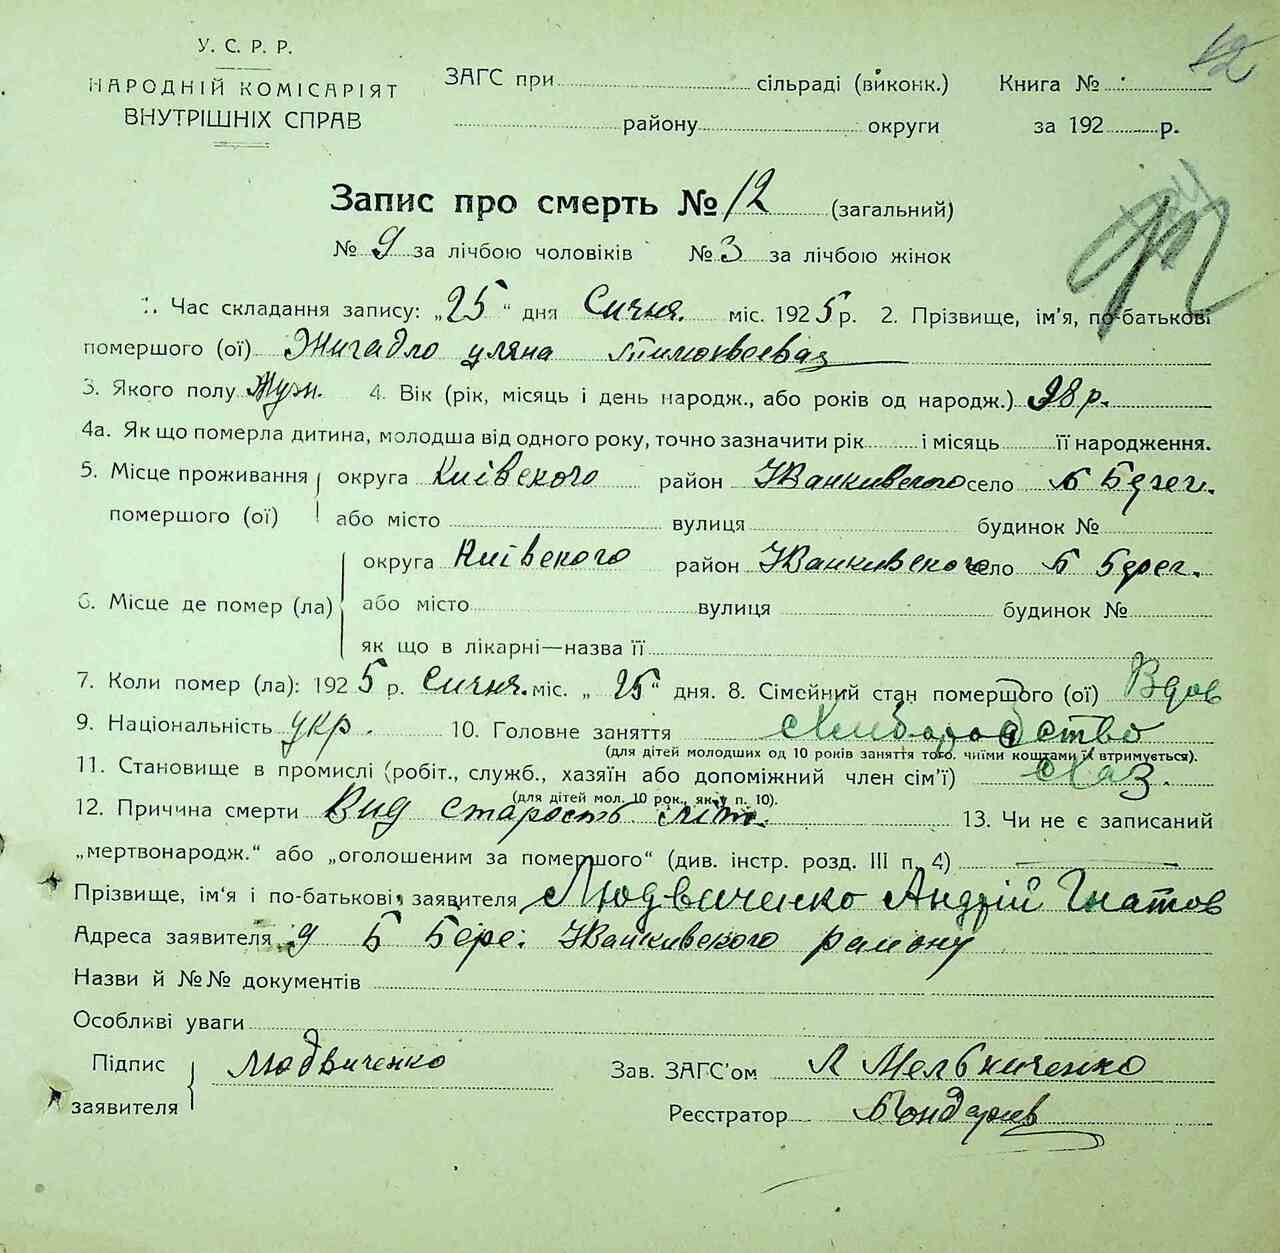 12
У. С. Р. Р.
НАРОДНІЙ КОМІСАРІЯТ
ВНУТРІШНІХ СПРАВ
ЗАГС при сільраді (виконк.) Книга №
району округи за 192 р.
Запис про смерть № 12 (загальний)
№ 9 за лічбою чоловіків № 3 за лічбою жінок
1. Час складання запису: „25“ дня Сичня. міс. 1925 р. 2. Прізвище, ім'я, по-батькові
помершого (ої) Жигадло уляна
3. Якого полу 4. Вік (рік, місяць і день народж., або років од народж.) 98 р.
4а. Як що померла дитина, молодша від одного року, точно зазначити рік і місяць її народження.
5. Місце проживання округа Київского район Іванкивского село Б Берег.
помершого (ої) або місто вулиця будинок №
округа Київского район Іванкивского село Б Берег.
6. Місце де помер (ла) або місто вулиця будинок №
як що в лікарні—назва її
7. Коли помер (ла): 1925 р. Сичня. міс. „25“ дня. 8. Сімейний стан помершого (ої) Вдов
9. Національність укр. 10. Головне заняття Хлиборобство
(для дітей молодших од 10 років заняття того. чиїми коштами їх втримується).
11. Становище в промислі (робіт., служб., хазяїн або допоміжний член сім'ї) Хаз.
(для дітей мол. 10 рок., як у п. 10).
12. Причина смерти Вид старость літ. 13. Чи не є записаний
„мертвонародж.“ або „оголошеним за помершого“ (див. інстр. розд. III п. 4)
Прізвище, ім'я і по-батькові заявителя Людвиченко Андрій Гнатов
Адреса заявителя Б Бере: Іванкивского району
Назви й №№ документів
Особливі уваги
Підпис заявителя Людвиченко Зав. ЗАГС'ом Л Мельниченко
Реєстратор